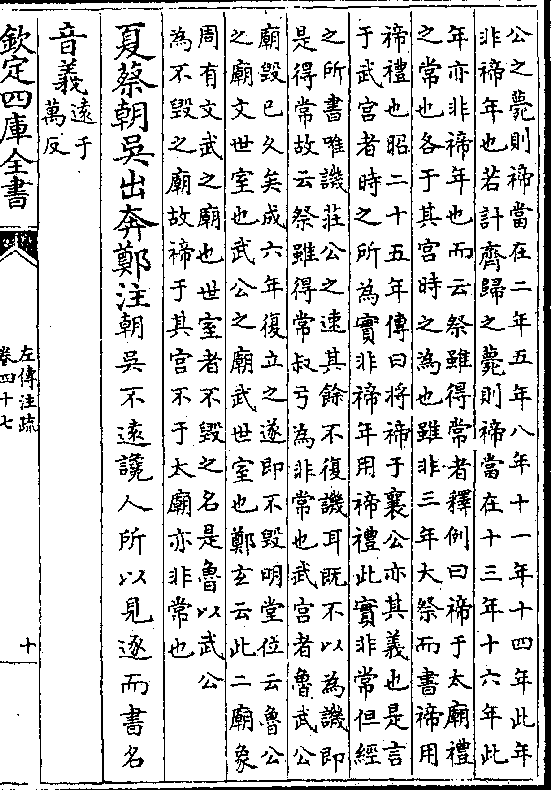 公之薨則禘當在二年五年八年十一年十四年此年
非禘年也若計齊歸之薨則禘當在十三年十六年此
年亦非禘年也而云祭雖得常者釋例曰禘于太廟禮
之常也各于其宮時之為也雖非三年大祭而書禘用
禘禮也昭二十五年傳曰將禘于襄公亦其義也是言
于武宮者時之所為實非禘年用禘禮此實非常但經
之所書唯譏莊公之速其餘不復譏耳既不以為譏即
是得常故云祭雖得常叔弓為非常也武宮者魯武公
廟毀已久矣成六年復立之遂即不毀明堂位云魯公
之廟文世室也武公之廟武世室也鄭玄云此二廟象
周有文武之廟也世室者不毀之名是魯以武公
為不毀之廟故禘于其宮不于太廟亦非常也
夏蔡朝吳出奔鄭注朝吳不遠讒人所以見逐而書名
音義遠于
萬反
欽定四庫全書
左傳注疏
卷四十七
十